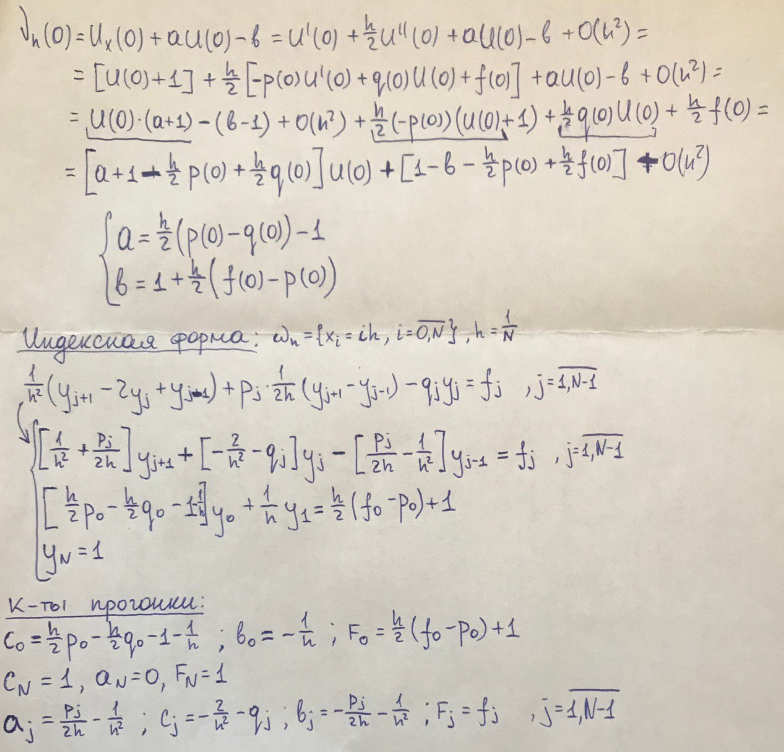 ν_h(0) = U_x(0) + aU(0) − в = U'(0) + h/2 U''(0) + aU(0) − в + O(h²) =
= [U(0)+1] + h/2 [−p(0)U'(0) + q(0)U(0) + f(0)] + aU(0) − в + O(h²) =
= U(0)·(a+1) − (в−1) + O(h²) + h/2 (−p(0))(U(0)+1) + h/2 q(0)U(0) + h/2 f(0) =
= [a+1 − h/2 p(0) + h/2 q(0)] U(0) + [1 − в − h/2 p(0) + h/2 f(0)] + O(h²)
{ a = h/2 (p(0) − q(0)) − 1
в = 1 + h/2 (f(0) − p(0))
Индексная форма: ω_h = {x_i = ih, i = 0,N}, h = 1/N
1/h² (y_{j+1} − 2y_j + y_{j−1}) + p_j · 1/2h (y_{j+1} − y_{j−1}) − q_j y_j = f_j , j = 1,N−1
[1/h² + p_j/2h] y_{j+1} + [−2/h² − q_j] y_j − [p_j/2h − 1/h²] y_{j−1} = f_j , j = 1,N−1
[h/2 p_0 − h/2 q_0 − 1 − 1/h] y_0 + 1/h y_1 = h/2 (f_0 − p_0) + 1
y_N = 1
К-ты прогонки:
c_0 = h/2 p_0 − h/2 q_0 − 1 − 1/h ; в_0 = −1/h ; F_0 = h/2 (f_0 − p_0) + 1
c_N = 1, a_N = 0, F_N = 1
a_j = p_j/2h − 1/h² ; c_j = −2/h² − q_j ; в_j = −p_j/2h − 1/h² ; F_j = f_j , j = 1,N−1